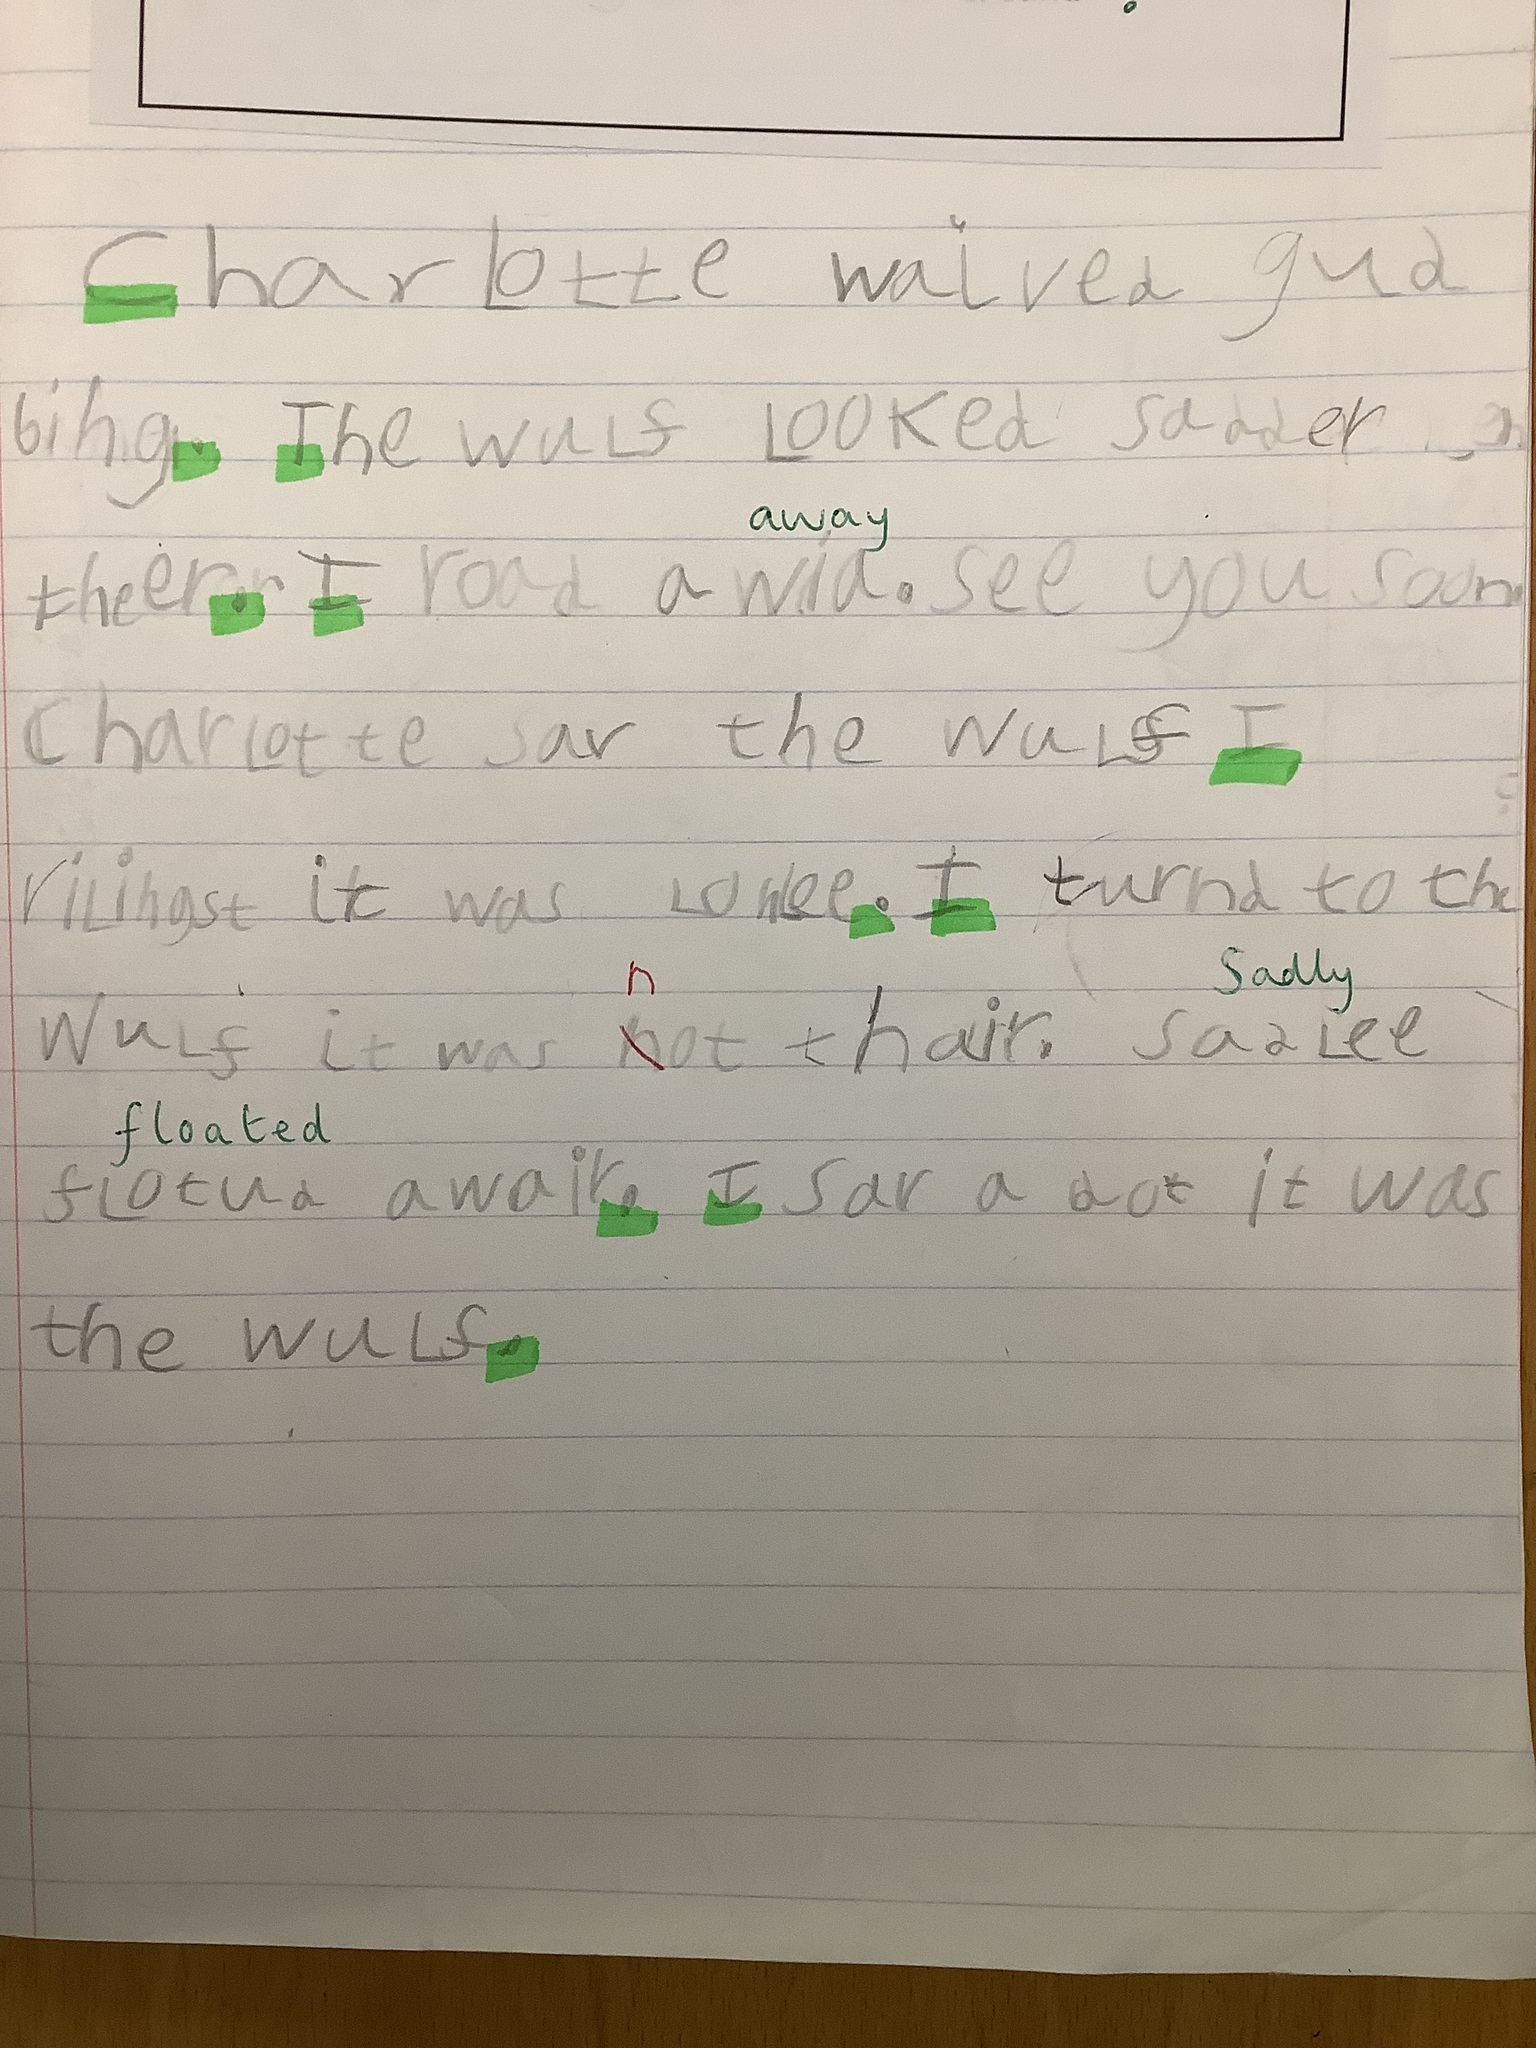 Charlotte waived gud
bihg. The wulf looked sadder
away
theer. I road a wid. see you soon
Charlotte sar the wulf I
rilihgst it was lonlee. I turnd to the
n
Sadly
wulf it was hot thair. sadlee
floated
flotud awair. I sar a dot it was
the wulf.